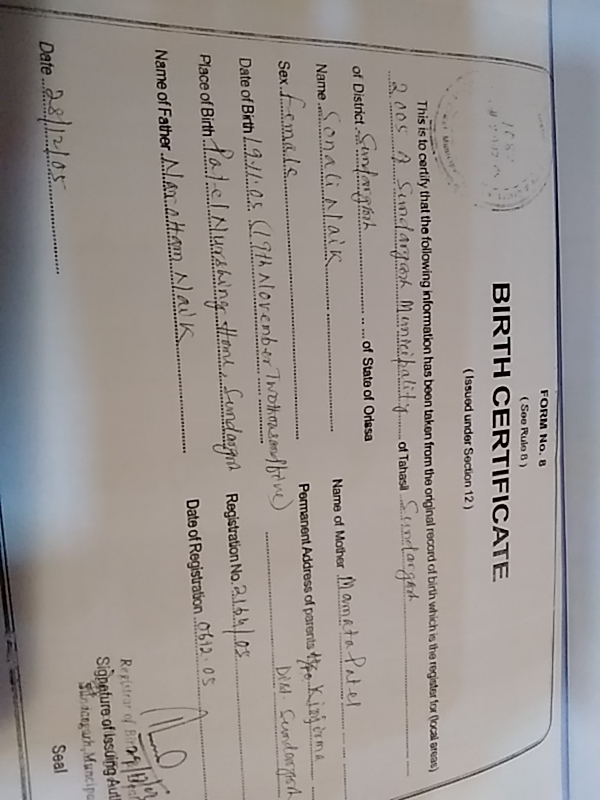 FORM No. 8
( See Rule 8 )
BIRTH CERTIFICATE
( Issued under Section 12 )
This is to certify that the following information has been taken from the original record of birth which is the register for (local areas)
2005 A Sundargarh Municipality of Tahasil Sundargarh
of District Sundargarh of State of Orissa
Name Sonali Naik Name of Mother Mamata Patel
Sex Female Permanent Address of parents Kinjirma
Date of Birth 19.11.05 (19th November Two thousand five) Dist. Sundargarh
Place of Birth Patel Nurshing Home, Sundargarh Registration No. 2164/05
Name of Father Narottam Naik Date of Registration 06.12.05
Date 28/12/05
Registrar of Birth
Signature of Issuing Auth
Sundargarh, Municipa
Seal